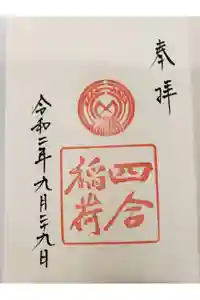 奉拝
四合
稲荷
令和二年九月二十九日